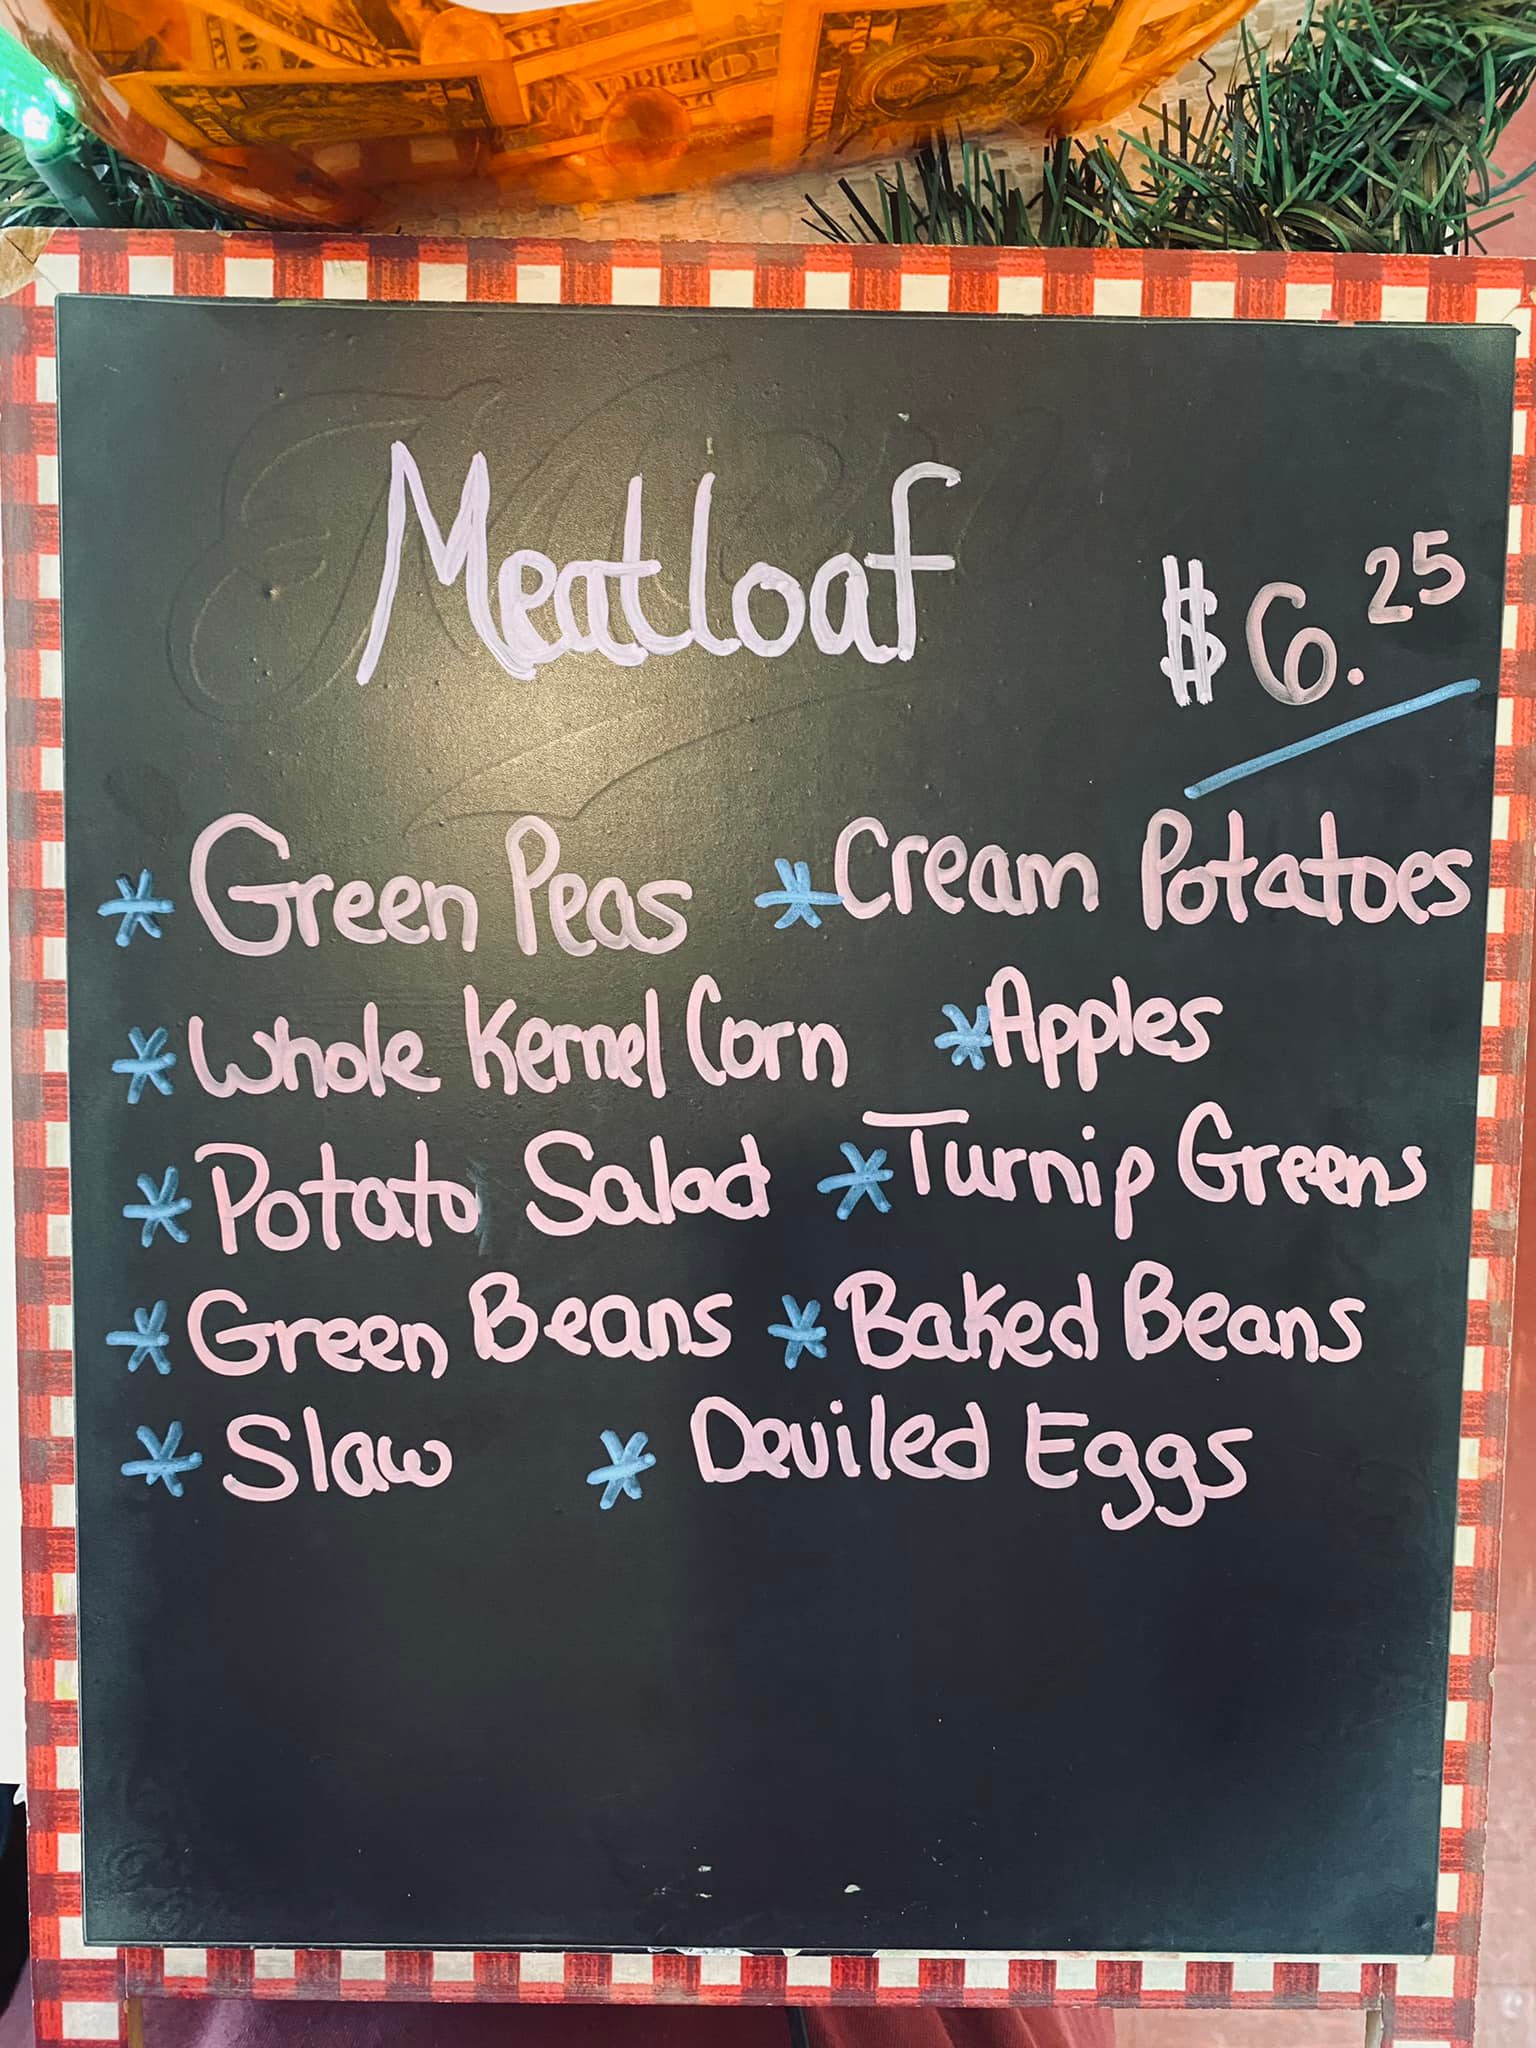 Meatloaf $6.25
* Green Peas * Cream Potatoes
* Whole Kernel Corn * Apples
* Potato Salad * Turnip Greens
* Green Beans * Baked Beans
* Slaw * Deviled Eggs